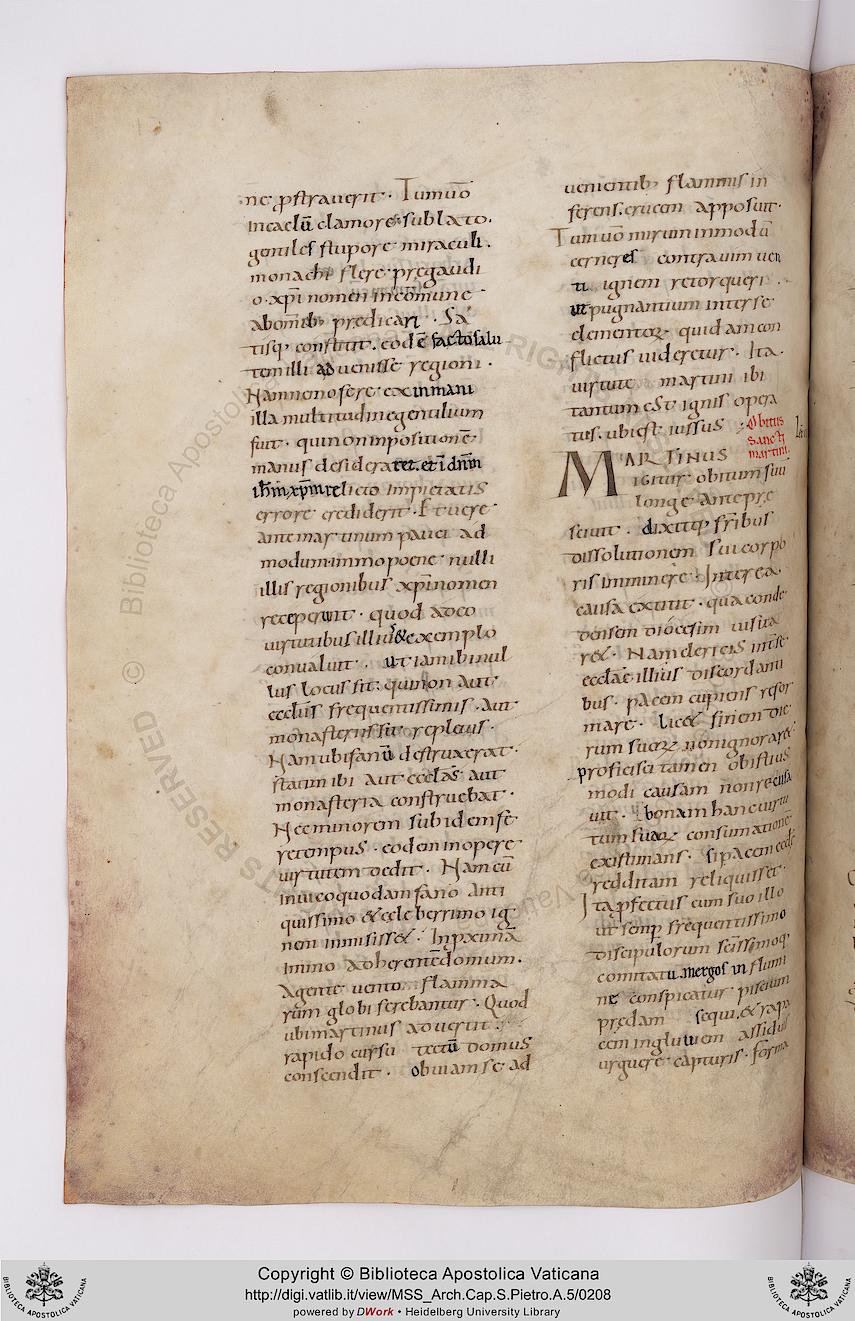 ne ꝓstrauerit · Tum uō
incaelū clamore & sublato.
gentiles stupore miraculi.
monachi flere pregaudi
o. xp̄i nomen incomune
abomnib; predicari · Sa
tisq; constitit. eo diē factō salu
tem illi aduenisse regioni.
Nam nemo fere exinmani
illa multitudine gentilium
fuit · qui non inpositionē
manus desideraret. et in dn̄m
ih̄m xp̄m relicto impietatis
errore crediderit · Et uere
ante martinum pauci ad
modum immo poene nulli
illis regionibus xp̄i nomen
receperunt · quod adeo
uirtutibus illius & exemplo
conualuit · ut iam ibi nul
lus locus sit. qui non aut
ecclīīs frequentissimis · aut
monasteriis sit repletus ·
Nam ubi fanū destruxerat ·
statim ibi aut ecclās aut
monasteria construebat ·
Nec minorem sub idem fe
re tempus · eodem in opere
uirtutem dedit · Nam cū
in uico quodam fano anti
quissimo & celeberrimo ig
nem inmisiss& · In ꝓximā
immo adherentē domum.
Agente uento flamma
rum globi ferebantur · Quod
ubi martinus aduertit ·
rapido cursu tectū domus
conscendit · obuiam se ad
uenientib; flammis in
ferens. crucem apposuit ·
Tum uō mirum in modū
cerneres contra uim uen
ti ignem retorqueri ·
ut pugnantium inter se
elementoꝝ quidam con
flictus uideretur · Ita
uirtute martini ibi
tantum est ignis opera
tus. ubi est iussus
Obitus
sancti
martini
MARTINUS
igitur obitum sui
longe ante pre
sciuit · dixitq; fr̄ibus
dissolutionem sui corpo
ris imminere · Interea
causa extitit · qua conda
censen diocesim uisita
r& · Nam clericis inter se
ecclāe illius discordanti
bus · pacem cupiens refor
mare · lic& finem die
rum suoꝝ non ignorar&
proficisci tamen obistius
modi causam non recusa
uit · bonam hanc uirtu
tum suaꝝ consumationē
existimans · si pacem eccle
redditam reliquisset ·
Ita ꝓfectus cum suo illo
ut semꝑ frequentissimo
discipulorum sc̄issimoq;
comitatu. mergos in flumi
ne conspicatur piscium
predam sequi. & rapa
cem ingluuiem assiduis
urguere capturis · forma
Copyright © Biblioteca Apostolica Vaticana
http://digi.vatlib.it/view/MSS_Arch.Cap.S.Pietro.A.5/0208
powered by DWork • Heidelberg University Library